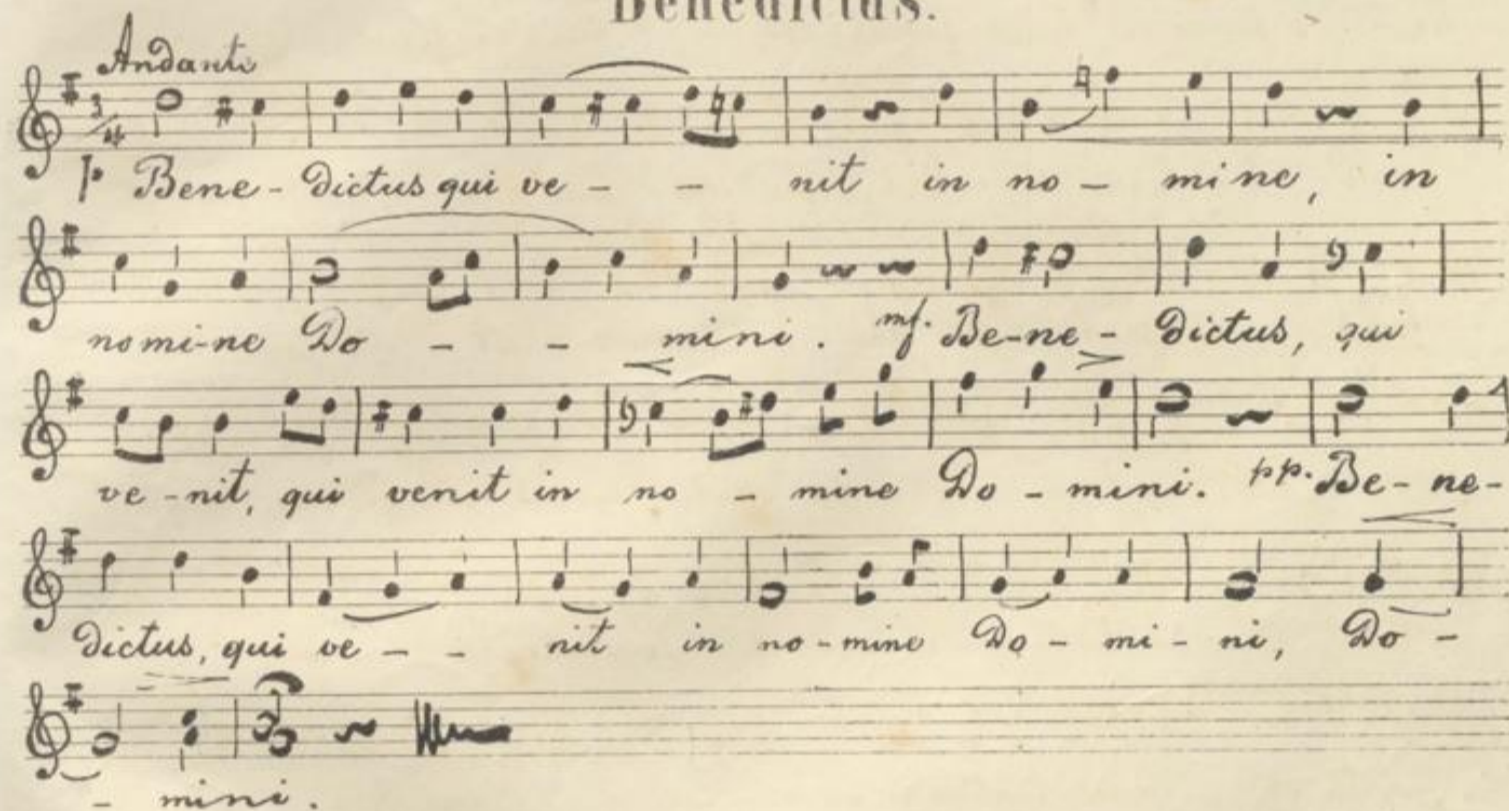 Benedictus.
Andante
3/4
p Bene-dictus qui ve - - nit in no - mine, in
nomi-ne Do - - mini. mf. Be-ne-dictus, qui
ve-nit, qui venit in no - mine Do-mini. pp. Be-ne-
dictus, qui ve - - nit in no-mine Do-mi-ni, Do-
- mini.